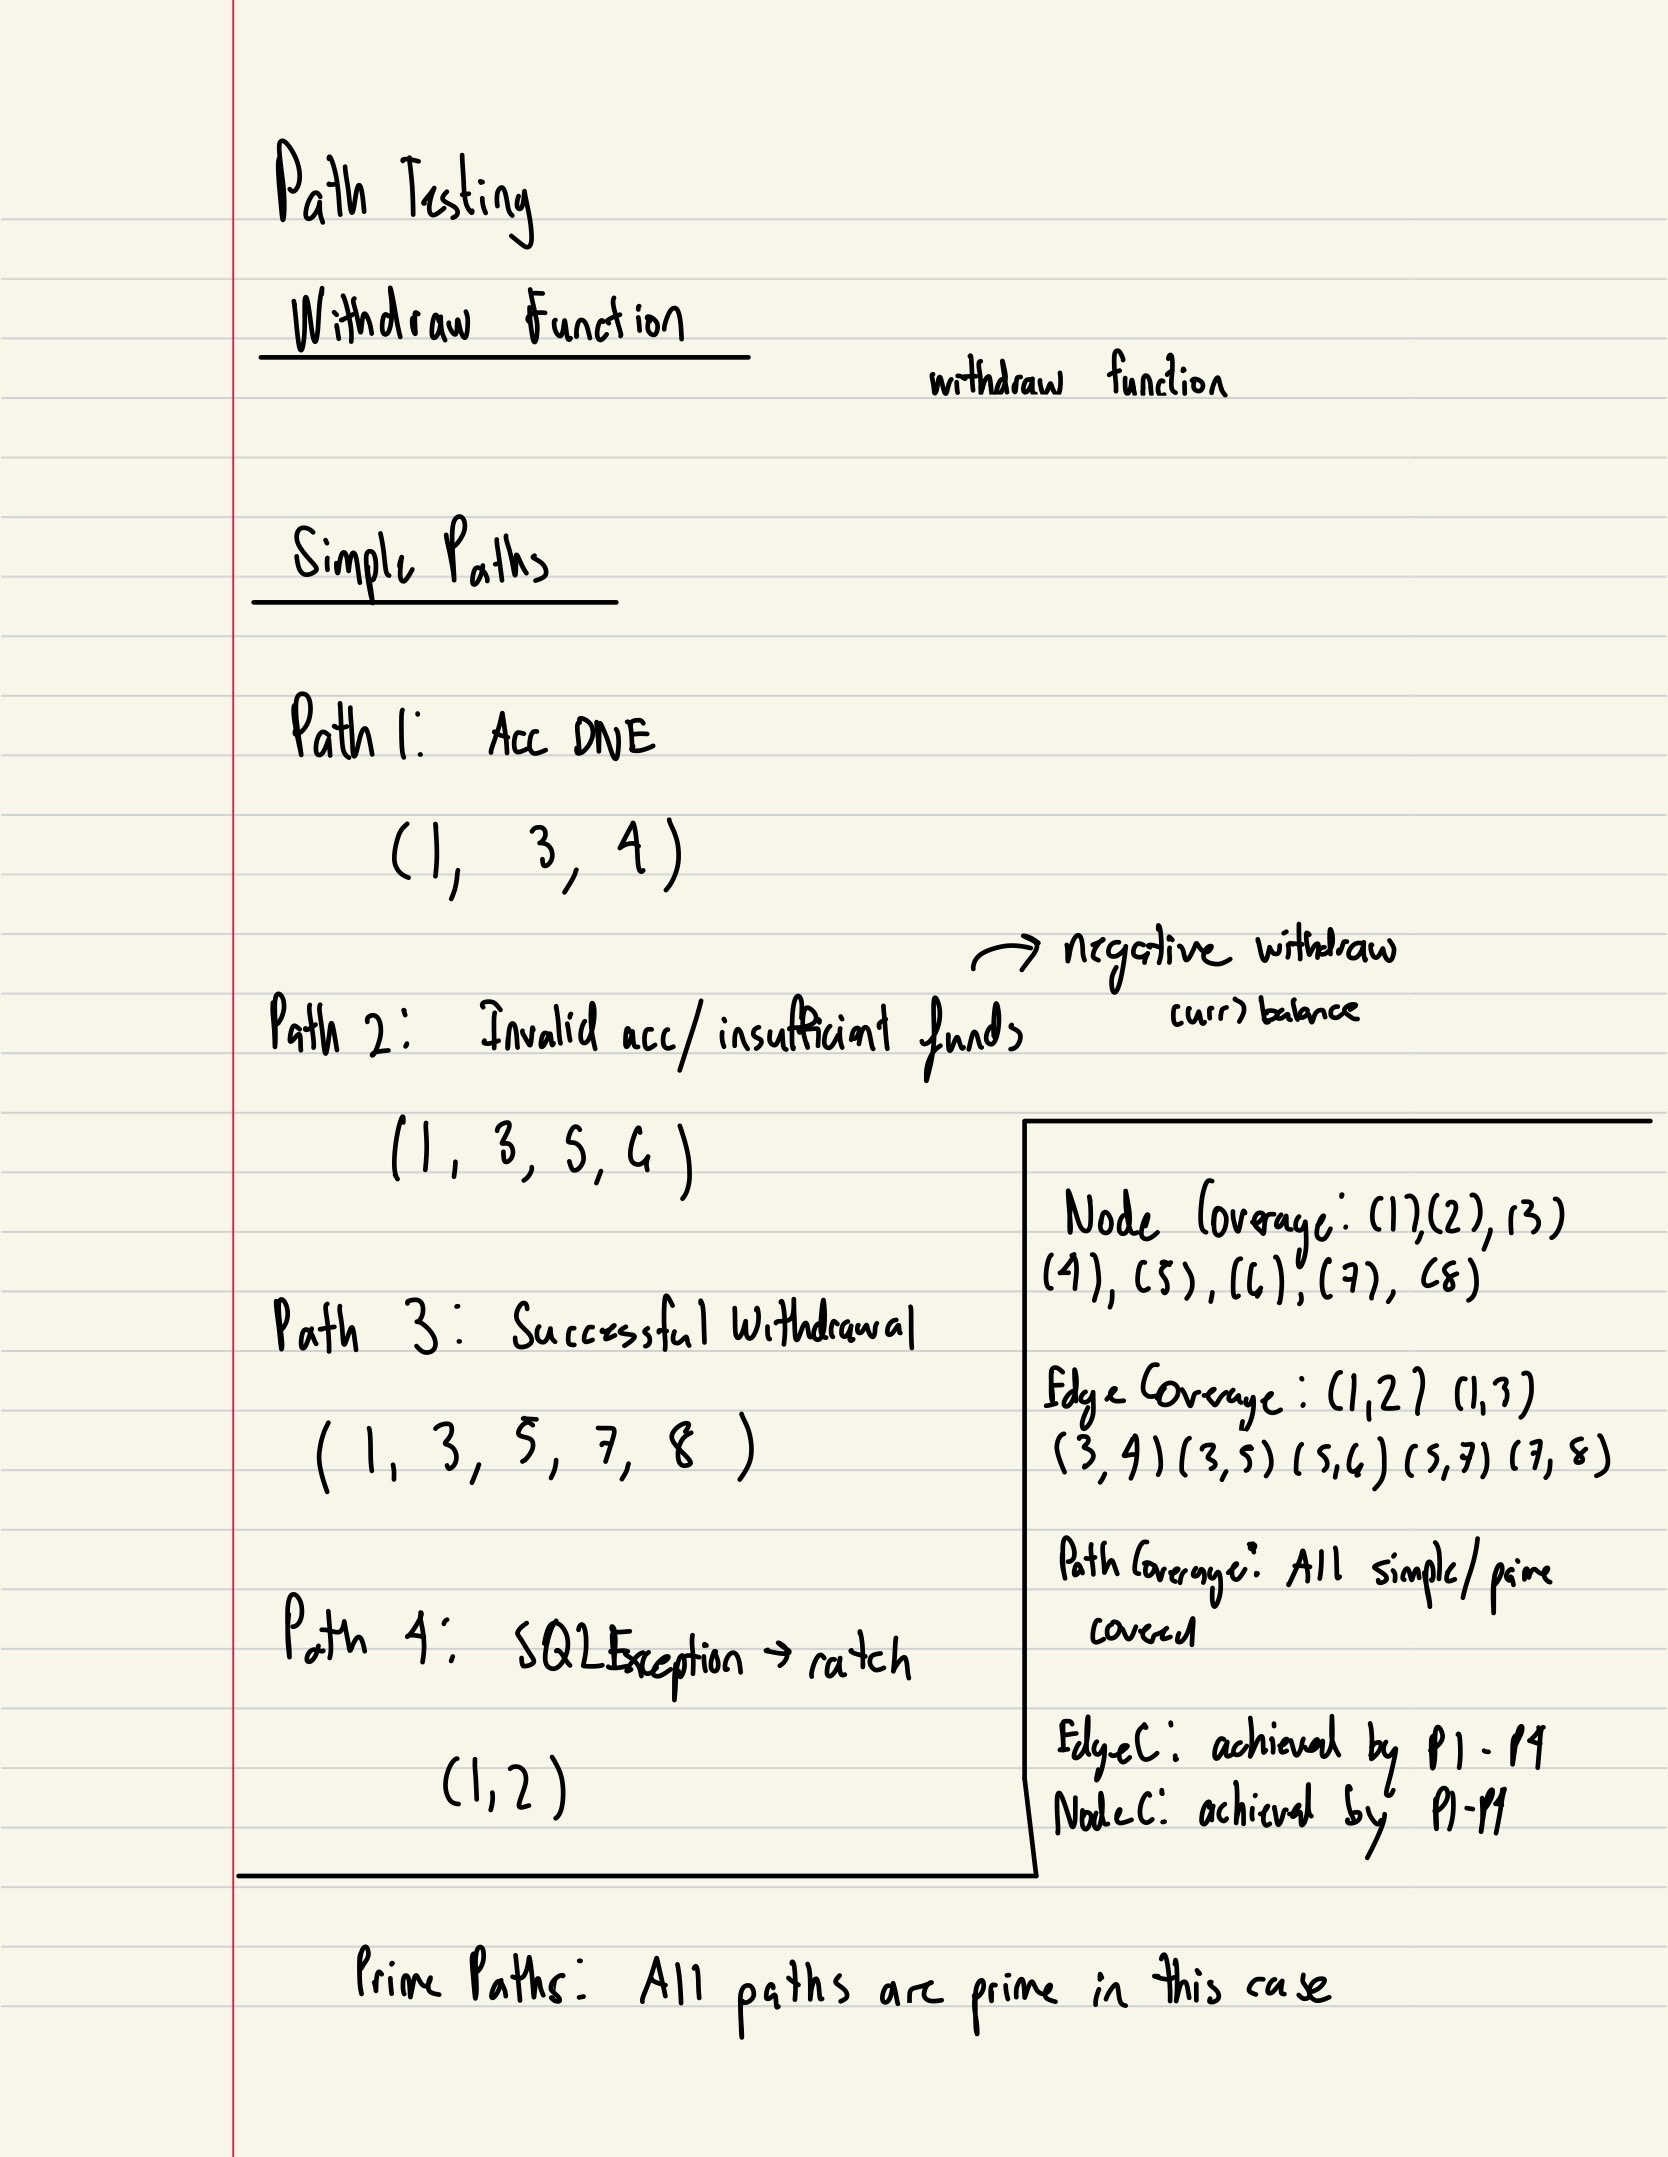 Path Testing
Withdraw Function
withdraw function
Simple Paths
Path 1: Acc DNE
(1, 3, 4)
negative withdraw
curr > balance
Path 2: Invalid acc/insufficient funds
(1, 3, 5, 6)
Path 3: Successful Withdrawal
(1, 3, 5, 7, 8)
Path 4: SQLException → catch
(1,2)
Node Coverage: (1),(2), (3)
(4), (5), (6), (7), (8)
Edge Coverage: (1,2) (1,3)
(3,4) (3,5) (5,6) (5,7) (7,8)
Path Coverage: All simple/prime
covered
EdgeC: achieved by P1-P4
NodeC: achieved by P1-P4
Prime Paths: All paths are prime in this case